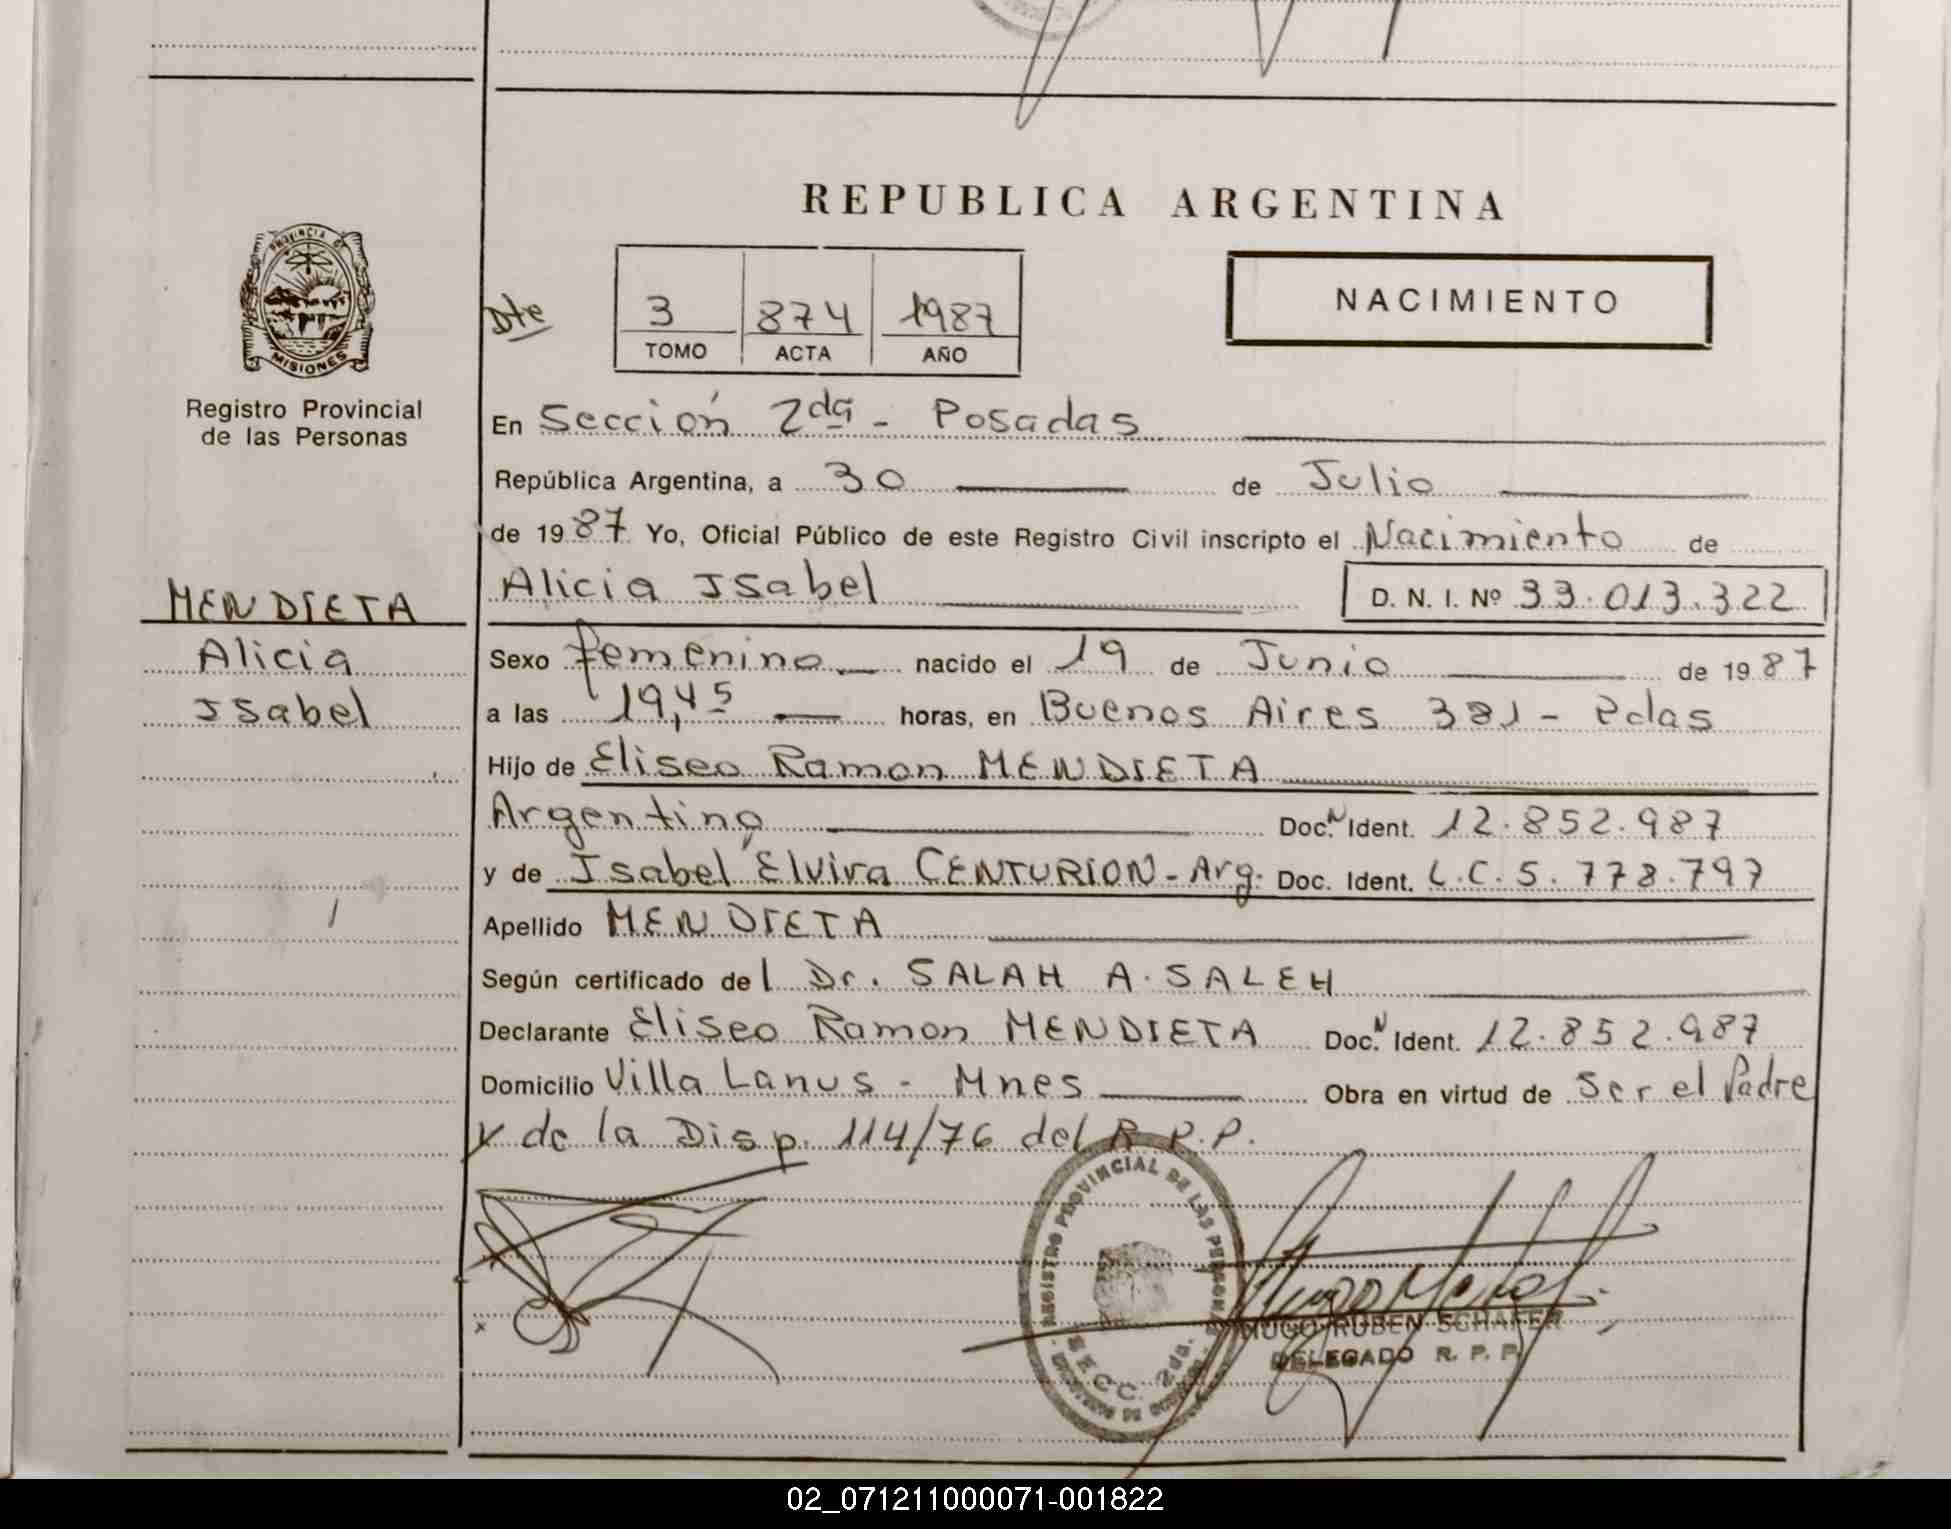 REPUBLICA ARGENTINA
PROVINCIA DE
MISIONES
Registro Provincial
de las Personas
MENDIETA
Alicia
Isabel
Dte
3 874 1987
TOMO ACTA AÑO
NACIMIENTO
En Sección 2da - Posadas
República Argentina, a 30 de Julio
de 1987 Yo, Oficial Público de este Registro Civil inscripto el Nacimiento de
Alicia Isabel D. N. I. Nº 33.013.322
Sexo femenino nacido el 19 de Junio de 1987
a las 19,45 horas, en Buenos Aires 381 - Pdas
Hijo de Eliseo Ramon MENDIETA
Argentino Doc. N Ident. 12.852.987
y de Isabel Elvira CENTURION - Arg. Doc. Ident. L.C. 5.778.797
Apellido MENDIETA
Según certificado del Dr. SALAH A. SALEH
Declarante Eliseo Ramon MENDIETA Doc. N Ident. 12.852.987
Domicilio Villa Lanus - Mnes Obra en virtud de Ser el Padre
y de la Disp. 114/76 del R.P.P.
REGISTRO PROVINCIAL DE LAS PERSONAS
SECC. 2da.
HUGO RUBEN SCHAFER
DELEGADO R. P. P.
02_071211000071-001822